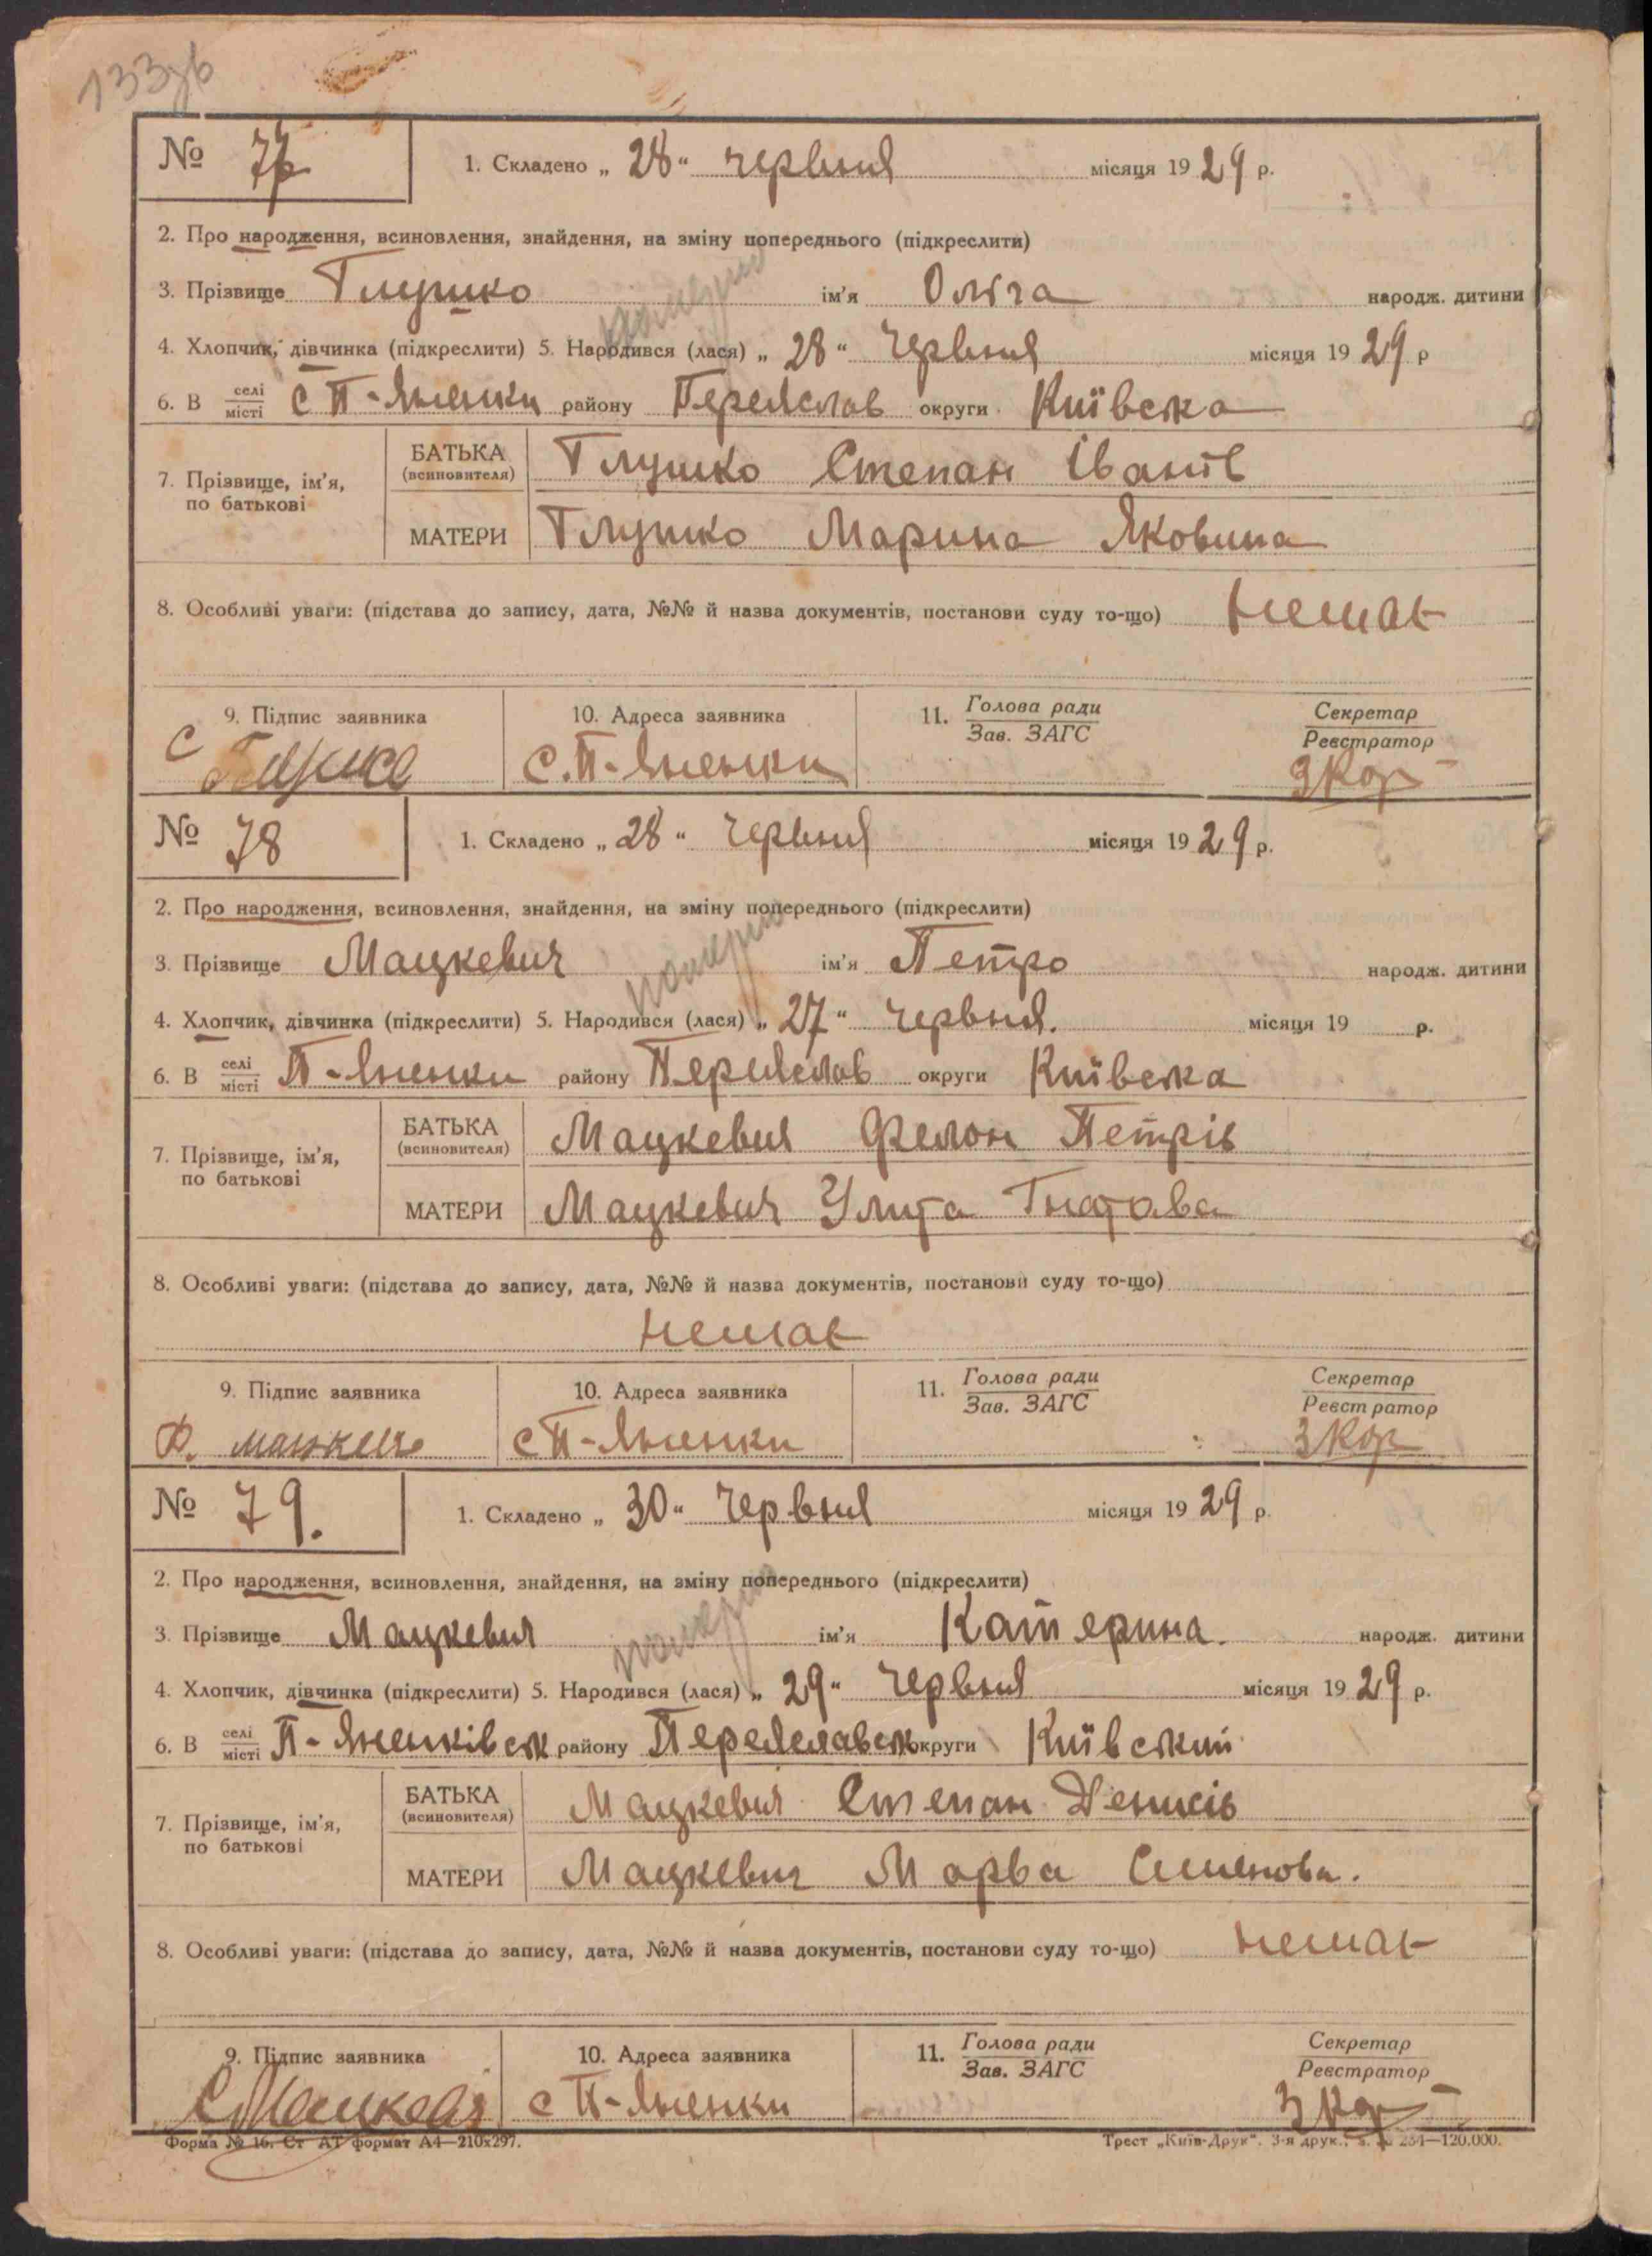 133зв
№ 77
1. Складено „ 28 “ червня місяця 1929 р.
2. Про народження, всиновлення, знайдення, на зміну попереднього (підкреслити)
3. Прізвище Глушко ім'я Ольга народж. дитини
4. Хлопчик, дівчинка (підкреслити) 5. Народився (лася) „ 28 “ Червня місяця 1929 р
6. В селі/місті с П-Яненки району Переяслав округи Київська
7. Прізвище, ім'я, по батькові
БАТЬКА (всиновителя) Глушко Степан Іванів
МАТЕРИ Глушко Марина Яковина
8. Особливі уваги: (підстава до запису, дата, №№ й назва документів, постанови суду то-що) немає
9. Підпис заявника 10. Адреса заявника 11. Голова ради/Зав. ЗАГС Секретар/Реєстратор
С Глушко с. П-Яненки
№ 78
1. Складено „ 28 “ Червня місяця 1929 р.
2. Про народження, всиновлення, знайдення, на зміну попереднього (підкреслити)
3. Прізвище Мацкевич ім'я Петро народж. дитини
4. Хлопчик, дівчинка (підкреслити) 5. Народився (лася) „ 27 “ червня. місяця 19 р.
6. В селі/місті П-Яненки району Переяслав округи Київська
7. Прізвище, ім'я, по батькові
БАТЬКА (всиновителя) Мацкевич Филон Петрів
МАТЕРИ Мацкевич Улита Гнатова
8. Особливі уваги: (підстава до запису, дата, №№ й назва документів, постанови суду то-що)
немає
9. Підпис заявника 10. Адреса заявника 11. Голова ради/Зав. ЗАГС Секретар/Реєстратор
с П-Яненки
№ 79.
1. Складено „ 30 “ Червня місяця 1929 р.
2. Про народження, всиновлення, знайдення, на зміну попереднього (підкреслити)
3. Прізвище Мацкевич ім'я Катерина. народж. дитини
4. Хлопчик, дівчинка (підкреслити) 5. Народився (лася) „ 29 “ Червня місяця 1929 р.
6. В селі/місті П-Яненківськ району Переяславськ округи Київський
7. Прізвище, ім'я, по батькові
БАТЬКА (всиновителя) Мацкевич Степан Денисів
МАТЕРИ Мацкевич Марва Семенова.
8. Особливі уваги: (підстава до запису, дата, №№ й назва документів, постанови суду то-що) немає
9. Підпис заявника 10. Адреса заявника 11. Голова ради/Зав. ЗАГС Секретар/Реєстратор
с П-Яненки
Форма № 16. Ст АТ формат А4—210х297. Трест „Київ-Друк“. 3-я друк.,